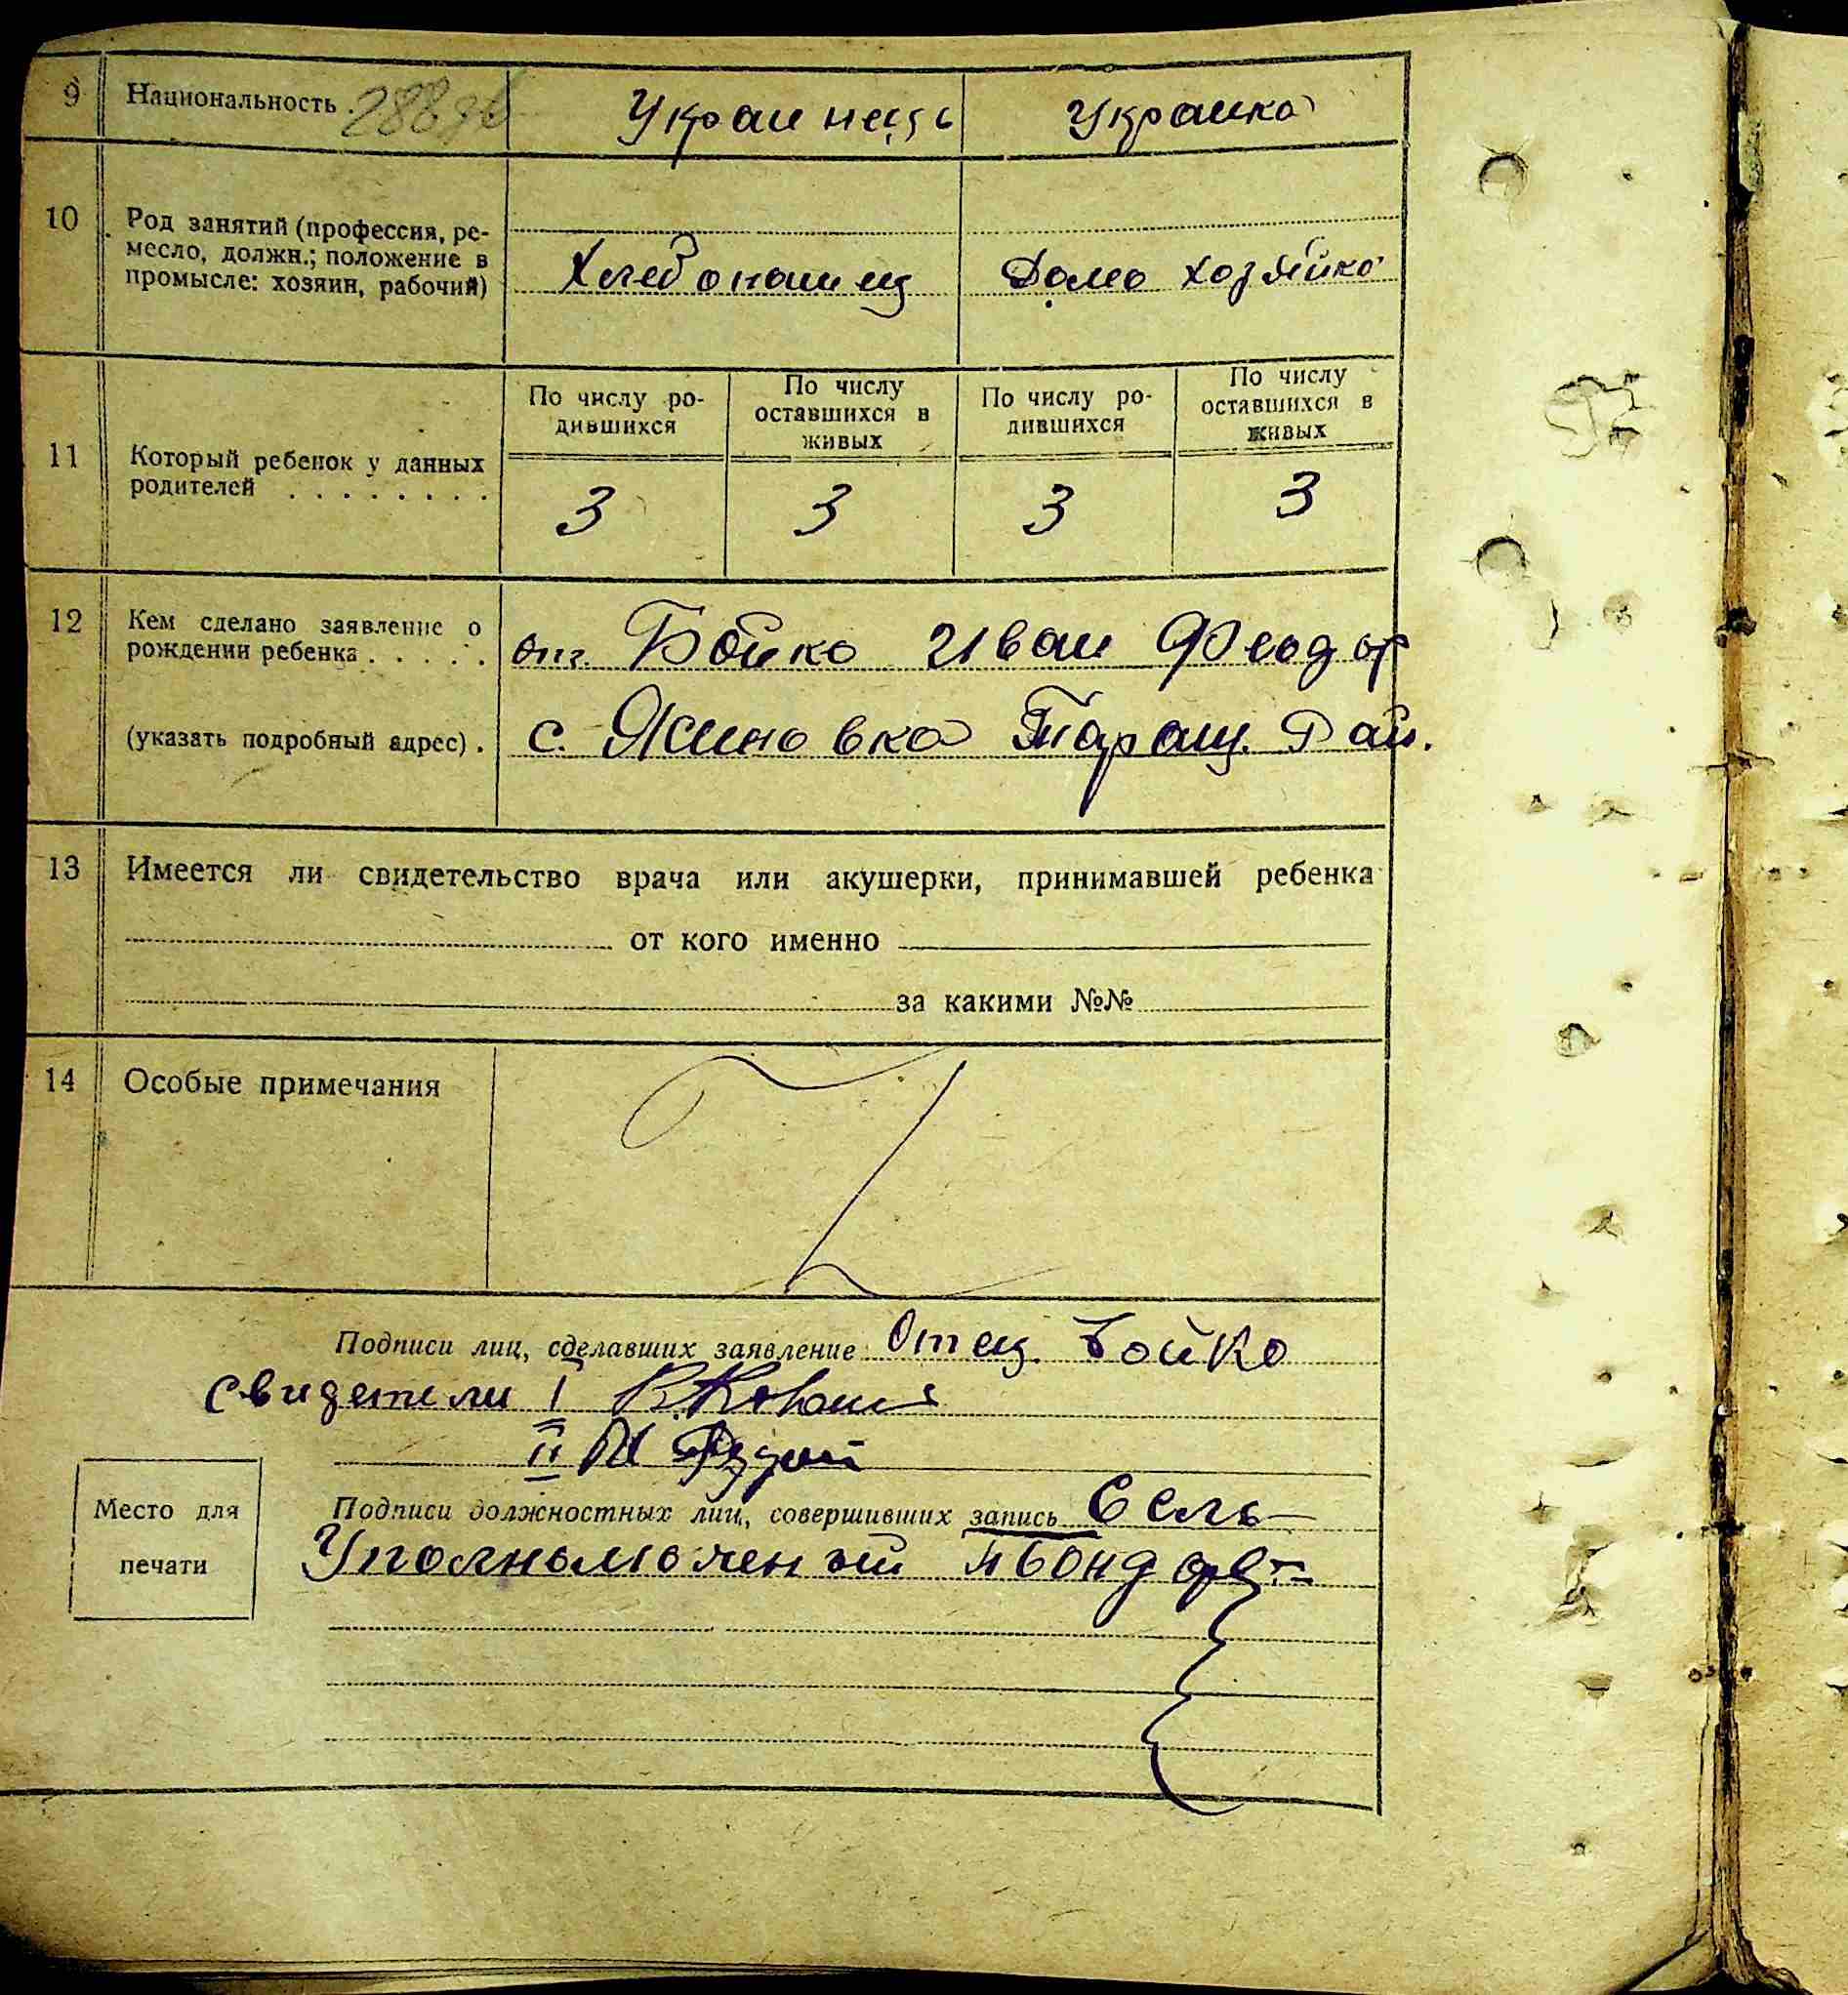 9 Национальность 288 Украинець Украинка
10 Род занятий (профессия, ре-
месло, должн.; положение в
промысле: хозяин, рабочий)
Хлебопашец Домо хозяйка
11 Который ребенок у данных
родителей . . . . . . . .
По числу ро-
дившихся
По числу
оставшихся в
живых
По числу ро-
дившихся
По числу
оставшихся в
живых
3 3 3 3
12 Кем сделано заявление о
рождении ребенка . . . . .
от. Бойко Иван Феодор
(указать подробный адрес) . с. Ясиновка Таращ. Рай.
13 Имеется ли свидетельство врача или акушерки, принимавшей ребенка
от кого именно
за какими №№
14 Особые примечания
Подписи лиц, сделавших заявление Отец Бойко
Свидетели I
II
Место для
печати
Подписи должностных лиц, совершивших запись Сель-
Уполномоченый